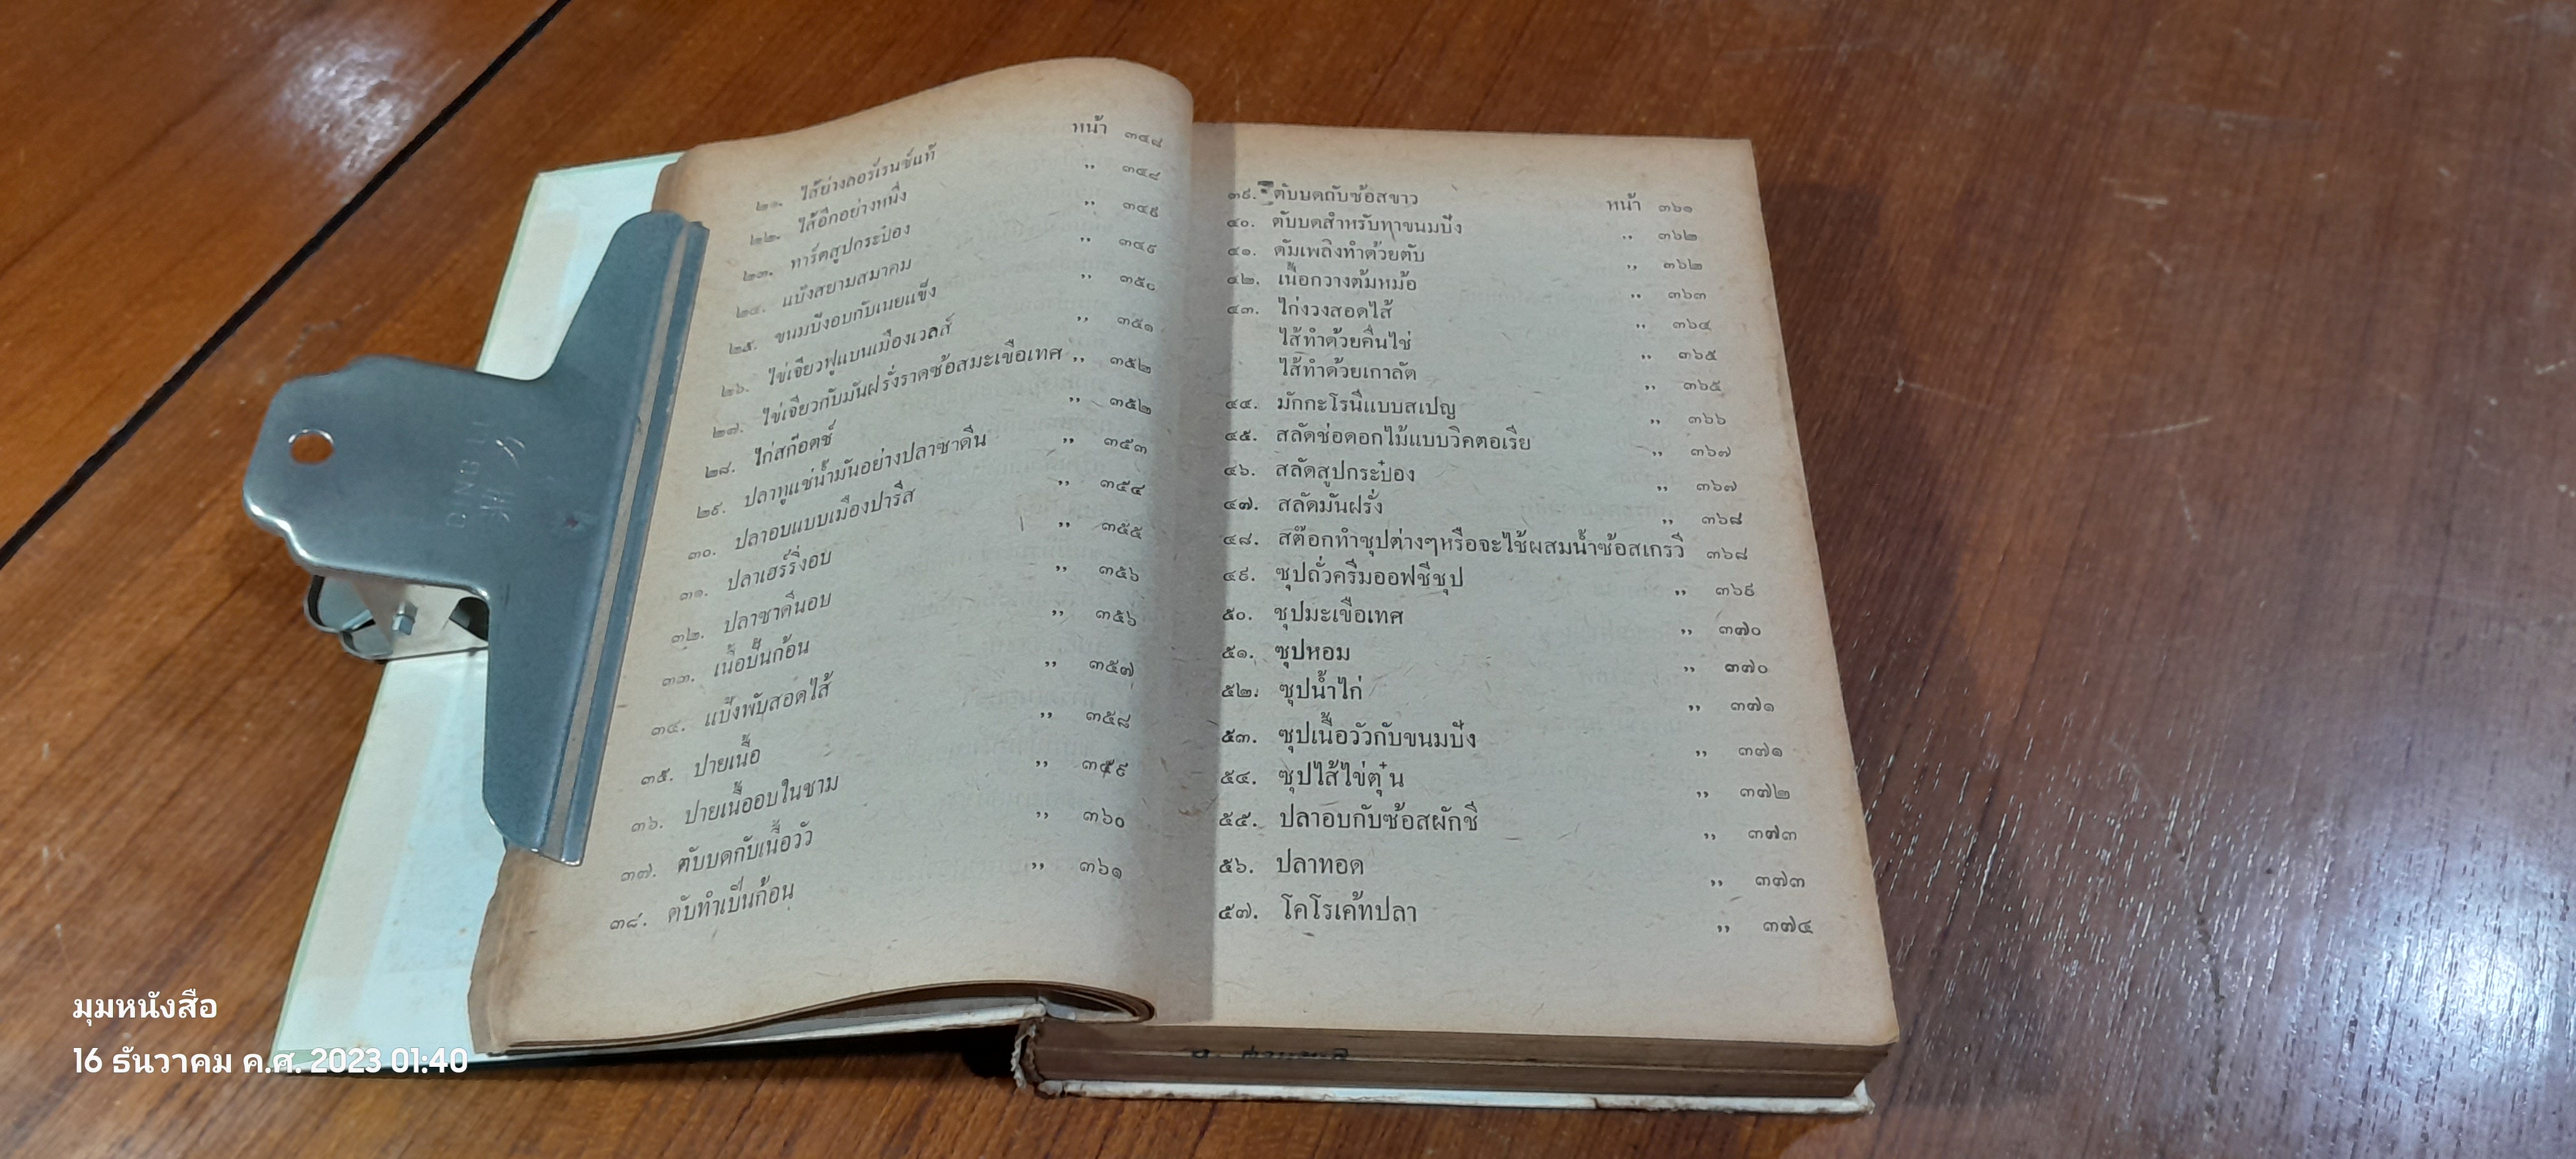 หน้า ๓๔๘
๒๑. ไส้ย่างลอร์เรนซ์แท้ ,, ๓๔๘
๒๒. ไส้อีกอย่างหนึ่ง ,, ๓๔๙
๒๓. ทาร์ตสูปกระป๋อง ,, ๓๔๙
๒๔. แป้งสยามสมาคม ,, ๓๕๐
๒๕. ขนมปังอบกับเนยแข็ง ,, ๓๕๑
๒๖. ไข่เจียวฟูแบนเมืองเวลส์ ,, ๓๕๒
๒๗. ไข่เจียวกับมันฝรั่งราดซ้อสมะเขือเทศ ,, ๓๕๒
๒๘. ไก่สก๊อตช์ ,, ๓๕๓
๒๙. ปลาทูแช่น้ำมันอย่างปลาซาดีน ,, ๓๕๔
๓๐. ปลาอบแบบเมืองปารีส ,, ๓๕๕
๓๑. ปลาเฮร์ริ่งอบ ,, ๓๕๖
๓๒. ปลาซาดีนอบ ,, ๓๕๖
๓๓. เนื้อปั้นก้อน ,, ๓๕๗
๓๔. แป้งพับสอดไส้ ,, ๓๕๘
๓๕. ปายเนื้อ ,, ๓๕๙
๓๖. ปายเนื้ออบในชาม ,, ๓๖๐
๓๗. ตับบดกับเนื้อวัว ,, ๓๖๑
๓๘. ตับทำเป็นก้อน
๓๙. ตับบดกับซ้อสขาว หน้า ๓๖๑
๔๐. ตับบดสำหรับทาขนมปัง ,, ๓๖๒
๔๑. ดัมเพลิงทำด้วยตับ ,, ๓๖๒
๔๒. เนื้อกวางต้มหม้อ ,, ๓๖๓
๔๓. ไก่งวงสอดไส้ ,, ๓๖๔
ไส้ทำด้วยคื่นไช่ ,, ๓๖๕
ไส้ทำด้วยเกาลัด ,, ๓๖๕
๔๔. มักกะโรนีแบบสเปญ ,, ๓๖๖
๔๕. สลัดช่อดอกไม้แบบวิคตอเรีย ,, ๓๖๗
๔๖. สลัดสูปกระป๋อง ,, ๓๖๗
๔๗. สลัดมันฝรั่ง ,, ๓๖๘
๔๘. สต๊อกทำซุปต่างๆหรือจะใช้ผสมน้ำซ้อสเกรวี ๓๖๘
๔๙. ซุปถั่วครีมออฟชีซุป ,, ๓๖๙
๕๐. ซุปมะเขือเทศ ,, ๓๗๐
๕๑. ซุปหอม ,, ๓๗๐
๕๒. ซุปน้ำไก่ ,, ๓๗๑
๕๓. ซุปเนื้อวัวกับขนมปัง ,, ๓๗๑
๕๔. ซุปไส้ไข่ตุ๋น ,, ๓๗๒
๕๕. ปลาอบกับซ้อสผักชี ,, ๓๗๓
๕๖. ปลาทอด ,, ๓๗๓
๕๗. โคโรเค้ทปลา ,, ๓๗๔
มุมหนังสือ
16 ธันวาคม ค.ศ. 2023 01:40